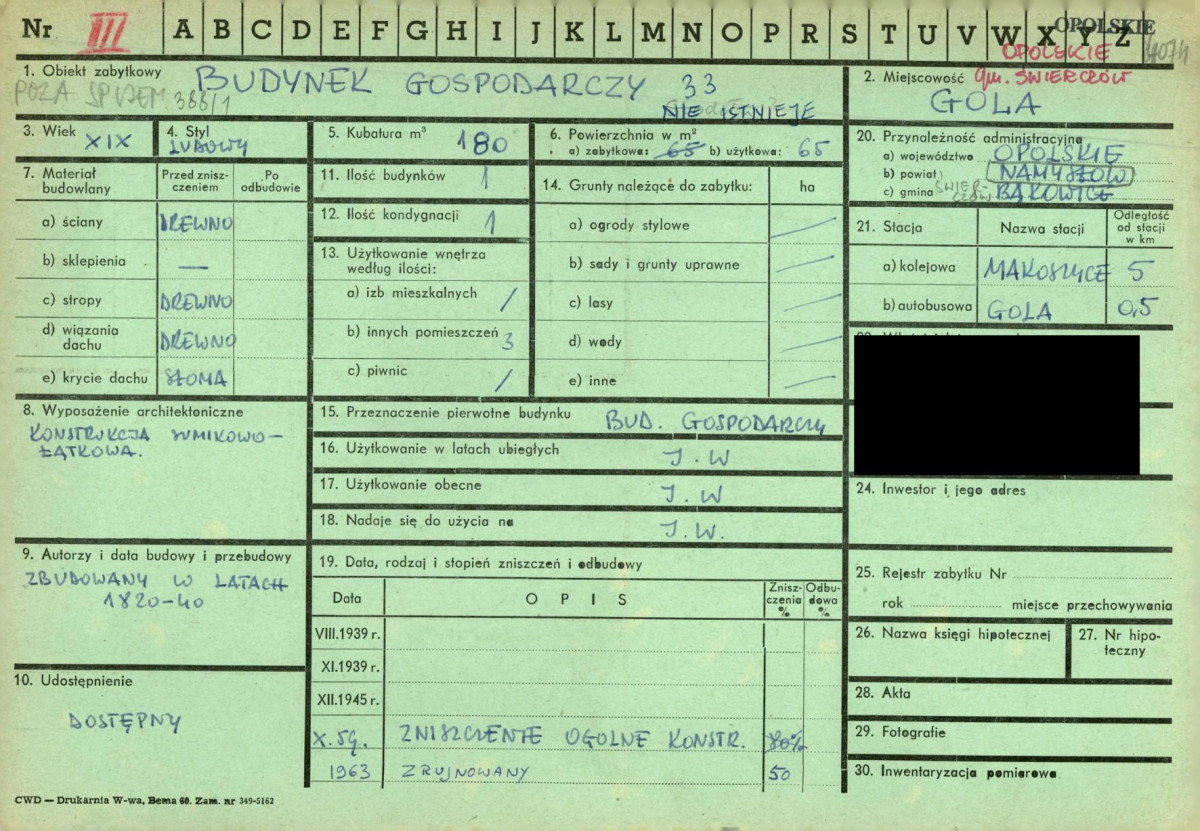 Nr III A B C D E F G H I J K L M N O P R S T U V W X Y Z
OPOLSKIE
OPOLSKIE
1. Obiekt zabytkowy BUDYNEK GOSPODARCZY 33
POZA SPISEM 388/1
NIE ISTNIEJE
2. Miejscowość gm. ŚWIERCZÓW
GOLA
3. Wiek
XIX
4. Styl
LUDOWY
5. Kubatura m³ 180
6. Powierzchnia w m²
a) zabytkowa: 65 b) użytkowa: 65
7. Materiał budowlany
Przed zniszczeniem
Po odbudowie
a) ściany DREWNO
b) sklepienia —
c) stropy DREWNO
d) wiązania dachu DREWNO
e) krycie dachu SŁOMA
8. Wyposażenie architektoniczne
KONSTRUKCJA SUMIKOWO-
ŁĄTKOWA.
9. Autorzy i data budowy i przebudowy
ZBUDOWANY W LATACH
1820-40
10. Udostępnienie
DOSTĘPNY
11. Ilość budynków 1
12. Ilość kondygnacji 1
13. Użytkowanie wnętrza
według ilości:
a) izb mieszkalnych /
b) innych pomieszczeń 3
c) piwnic /
14. Grunty należące do zabytku: ha
a) ogrody stylowe
b) sady i grunty uprawne
c) lasy
d) wody
e) inne
15. Przeznaczenie pierwotne budynku BUD. GOSPODARCZY
16. Użytkowanie w latach ubiegłych J. W
17. Użytkowanie obecne J. W
18. Nadaje się do użycia na J. W.
19. Data, rodzaj i stopień zniszczeń i odbudowy
Data OPIS Zniszczenia % Odbudowa %
VIII.1939 r.
XI.1939 r.
XII.1945 r.
X.59. ZNISZCZENIE OGOLNE KONSTR. 80%
1963 ZRUJNOWANY 50
20. Przynależność administracyjna
a) województwo OPOLSKIE
b) powiat NAMYSŁÓW
c) gmina ŚWIERCZÓW BĄKOWICE
21. Stacja Nazwa stacji Odległość od stacji w km
a) kolejowa MAKOSZYCE 5
b) autobusowa GOLA 0,5
24. Inwestor i jego adres
25. Rejestr zabytku Nr
rok miejsce przechowywania
26. Nazwa księgi hipotecznej
27. Nr hipoteczny
28. Akta
29. Fotografie
30. Inwentaryzacja pomiarowa
CWD — Drukarnia W-wa, Bema 60. Zam. nr 349-5162